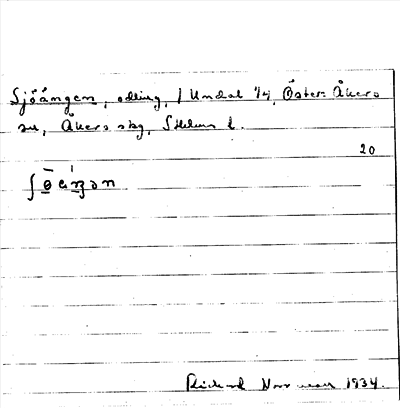 Sjöängen, odling, 1 Undal 1/4, Öster-Åkers
sn, Åkers skg, Sthlms l.
20
Rickard 1934.